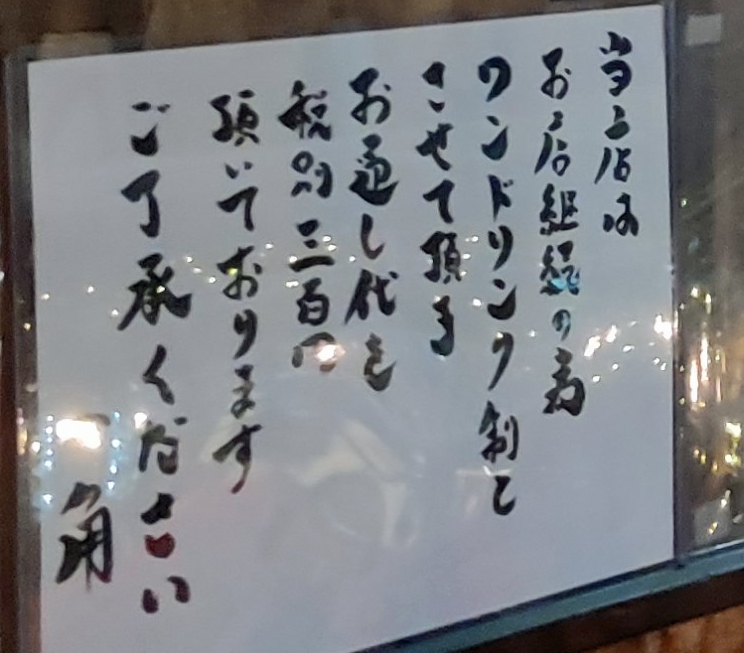 当店は
お店継続の為
ワンドリンク制と
させて頂き
お通し代を
税別三百円
頂いております
ご了承ください
角